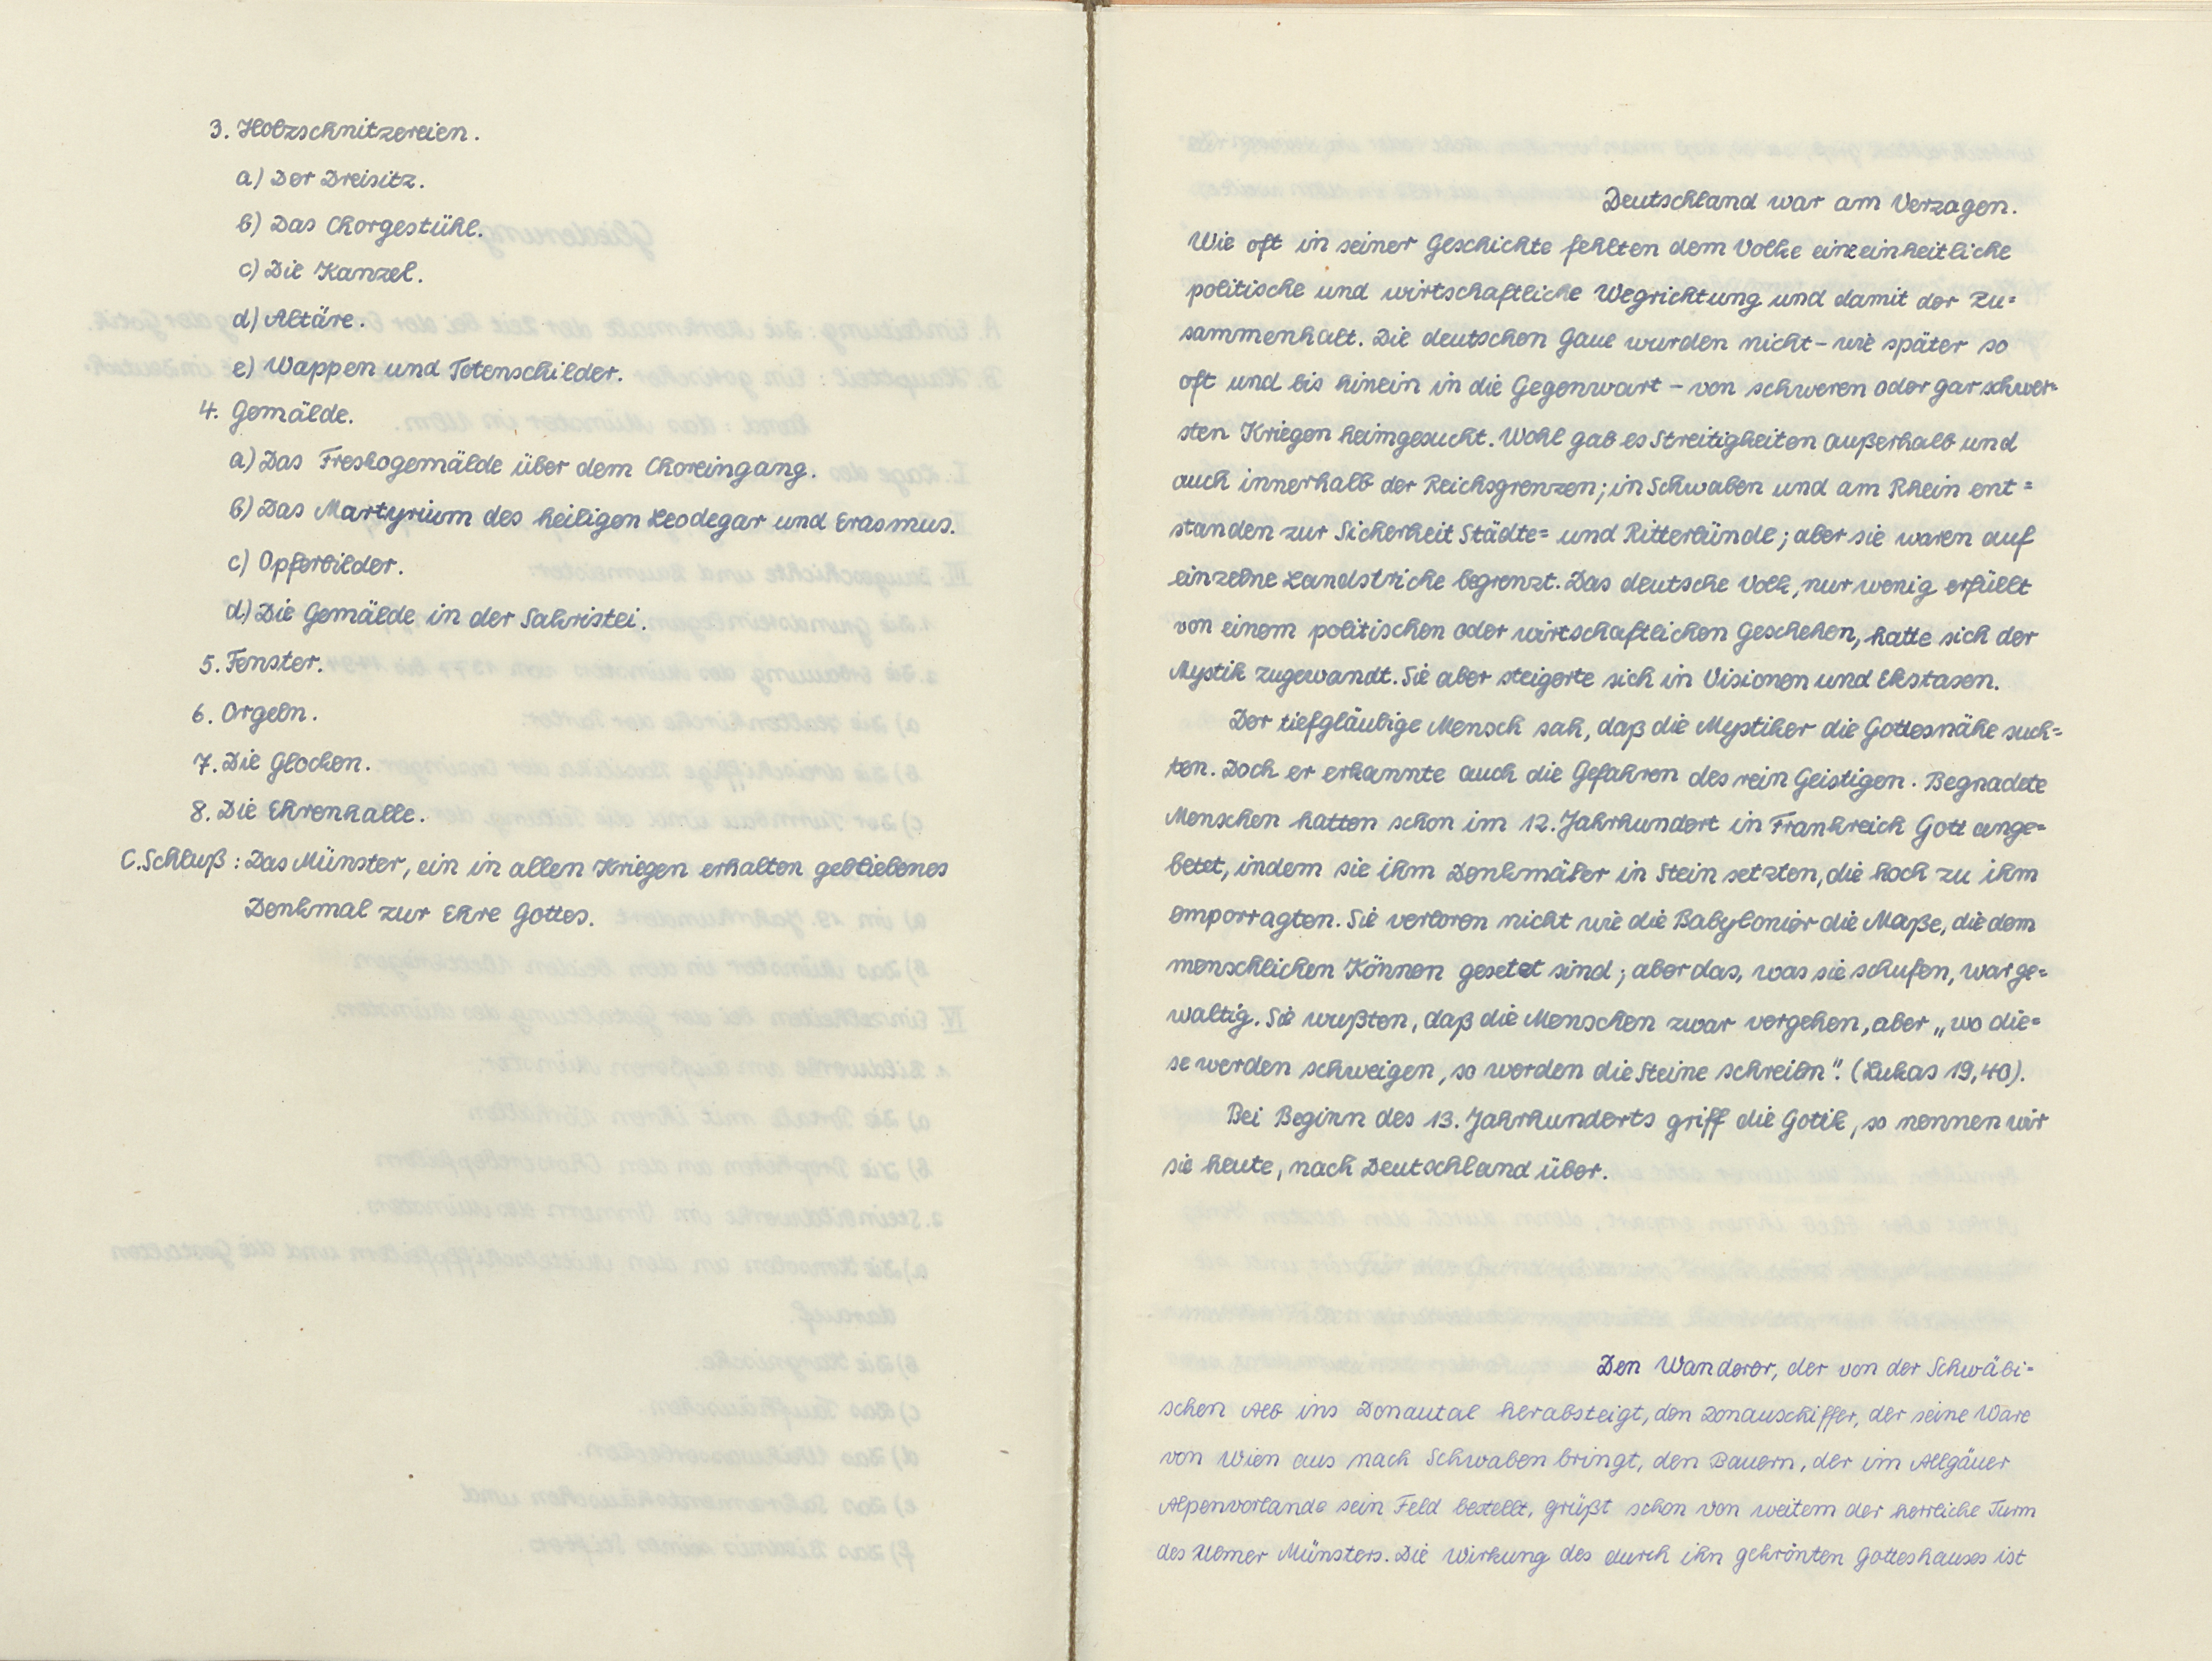 3. Holzschnitzereien.
a) Der Dreisitz.
b) Das Chorgestühl.
c) Die Kanzel.
d) Altäre.
e) Wappen und Totenschilder.
4. Gemälde.
a) Das Freskogemälde über dem Choreingang.
b) Das Martyrium des heiligen Leodegar und Erasmus.
c) Opferbilder.
d) Die Gemälde in der Sakristei.
5. Fenster.
6. Orgeln.
7. Die Glocken.
8. Die Ehrenhalle.
C. Schluß: Das Münster, ein in allen Kriegen erhalten gebliebenes
Denkmal zur Ehre Gottes.
Deutschland war am Verzagen.
Wie oft in seiner Geschichte fehlten dem Volke eine einheitliche
politische und wirtschaftliche Wegrichtung und damit der Zu=
sammenhalt. Die deutschen Gaue wurden nicht – wie später so
oft und bis hinein in die Gegenwart – von schweren oder gar schwer=
sten Kriegen heimgesucht. Wohl gab es Streitigkeiten außerhalb und
auch innerhalb der Reichsgrenzen; in Schwaben und am Rhein ent=
standen zur Sicherheit Städte= und Ritterbünde; aber sie waren auf
einzelne Landstriche begrenzt. Das deutsche Volk, nur wenig erfüllt
von einem politischen oder wirtschaftlichen Geschehen, hatte sich der
Mystik zugewandt. Sie aber steigerte sich in Visionen und Ekstasen.
Der tiefgläubige Mensch sah, daß die Mystiker die Gottesnähe such=
ten. Doch er erkannte auch die Gefahren des rein Geistigen. Begnadete
Menschen hatten schon im 12. Jahrhundert in Frankreich Gott ange=
betet, indem sie ihm Denkmäler in Stein setzten, die hoch zu ihm
emporragten. Sie verloren nicht wie die Babylonier die Maße, die dem
menschlichen Können gesetzt sind; aber das, was sie schufen, war ge=
waltig. Sie wußten, daß die Menschen zwar vergehen, aber „wo die=
se werden schweigen, so werden die Steine schreien“. (Lukas 19,40).
Bei Beginn des 13. Jahrhunderts griff die Gotik, so nennen wir
sie heute, nach Deutschland über.
Den Wanderer, der von der Schwäbi=
schen Alb ins Donautal herabsteigt, den Donauschiffer, der seine Ware
von Wien aus nach Schwaben bringt, den Bauern, der im Allgäuer
Alpenvorlande sein Feld bestellt, grüßt schon von weitem der herrliche Turm
des Ulmer Münsters. Die Wirkung des durch ihn gekrönten Gotteshauses ist